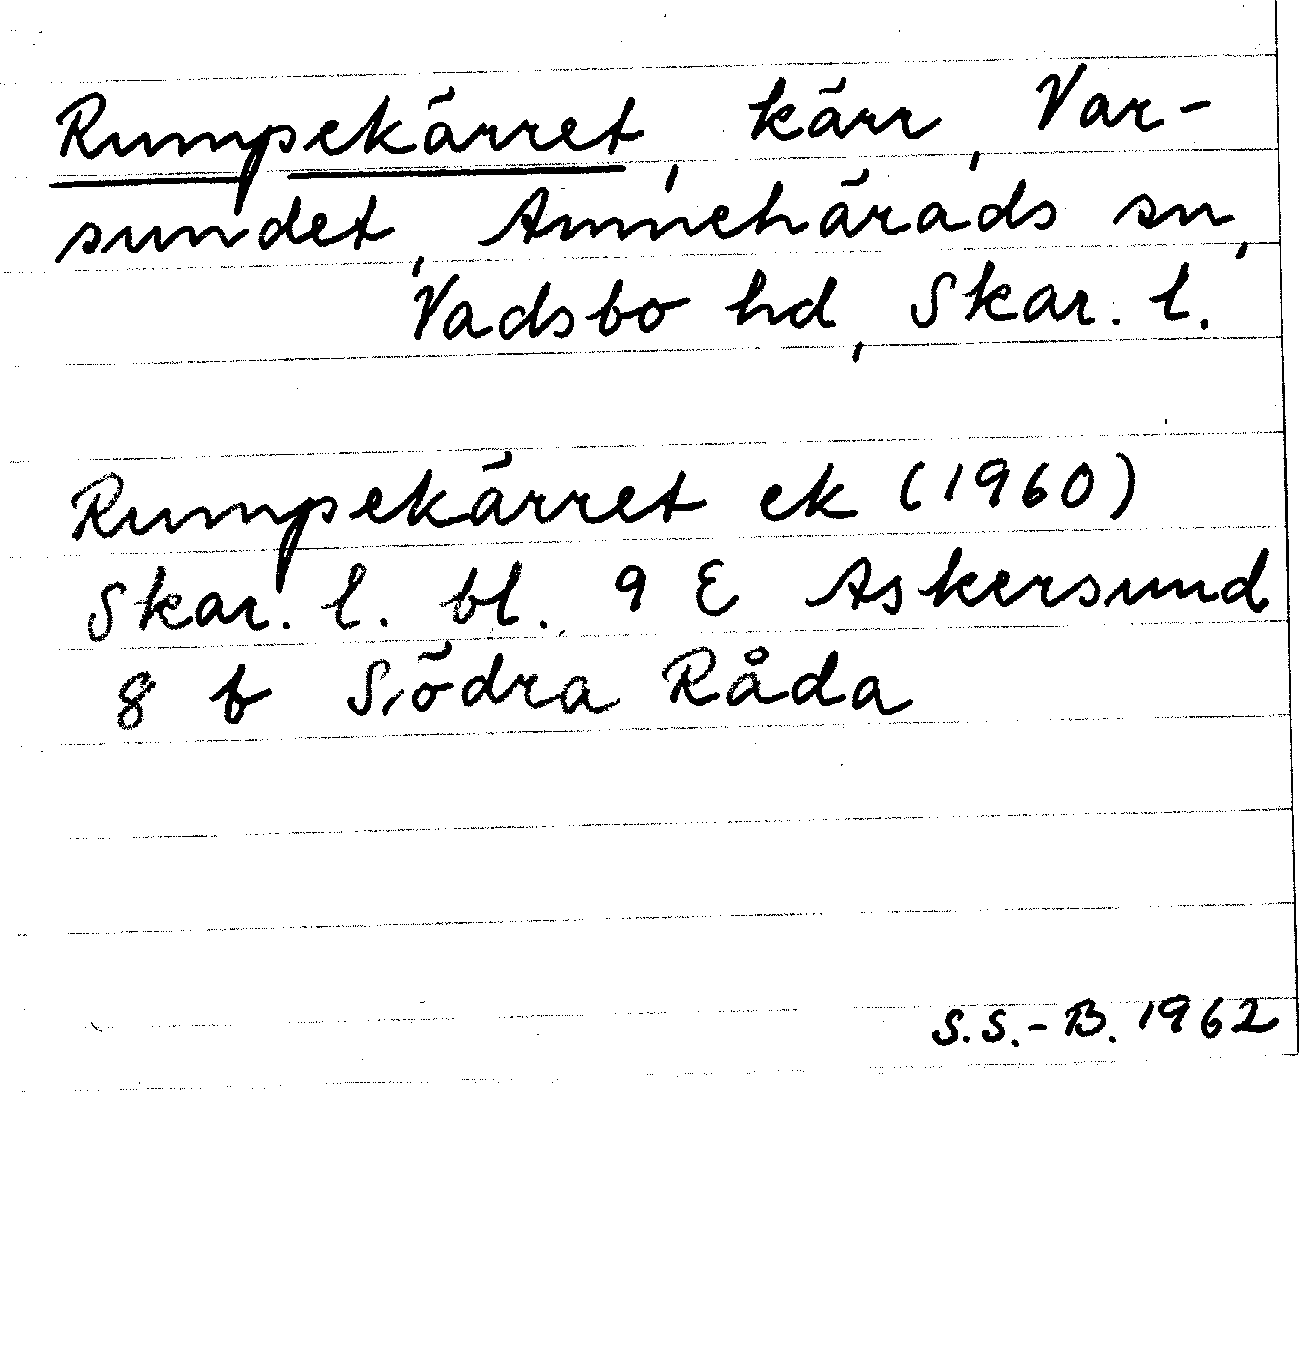 Rumpekärret, kärr, Var-
sundet, Amnehärads sn,
Vadsbo hd, Skar. l.
Rumpekärret ek (1960)
Skar. l. bl. 9 E Askersund
8 b Södra Råda
S.S.-B. 1962